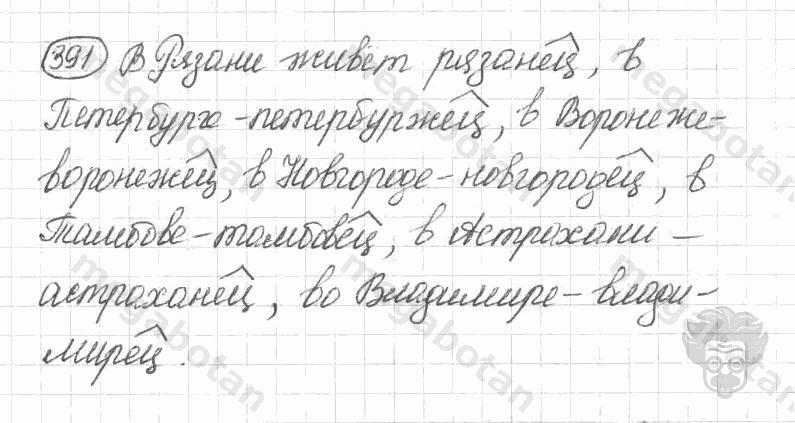 391 В Рязани живёт рязанец, в
Петербурге - петербуржец, в Воронеже -
воронежец, в Новгороде - новгородец, в
Тамбове - тамбовец, в Астрахани -
астраханец, во Владимире - влади-
мирец.
megabotan
megabotan
megabotan
megabotan
megabotan
megabotan